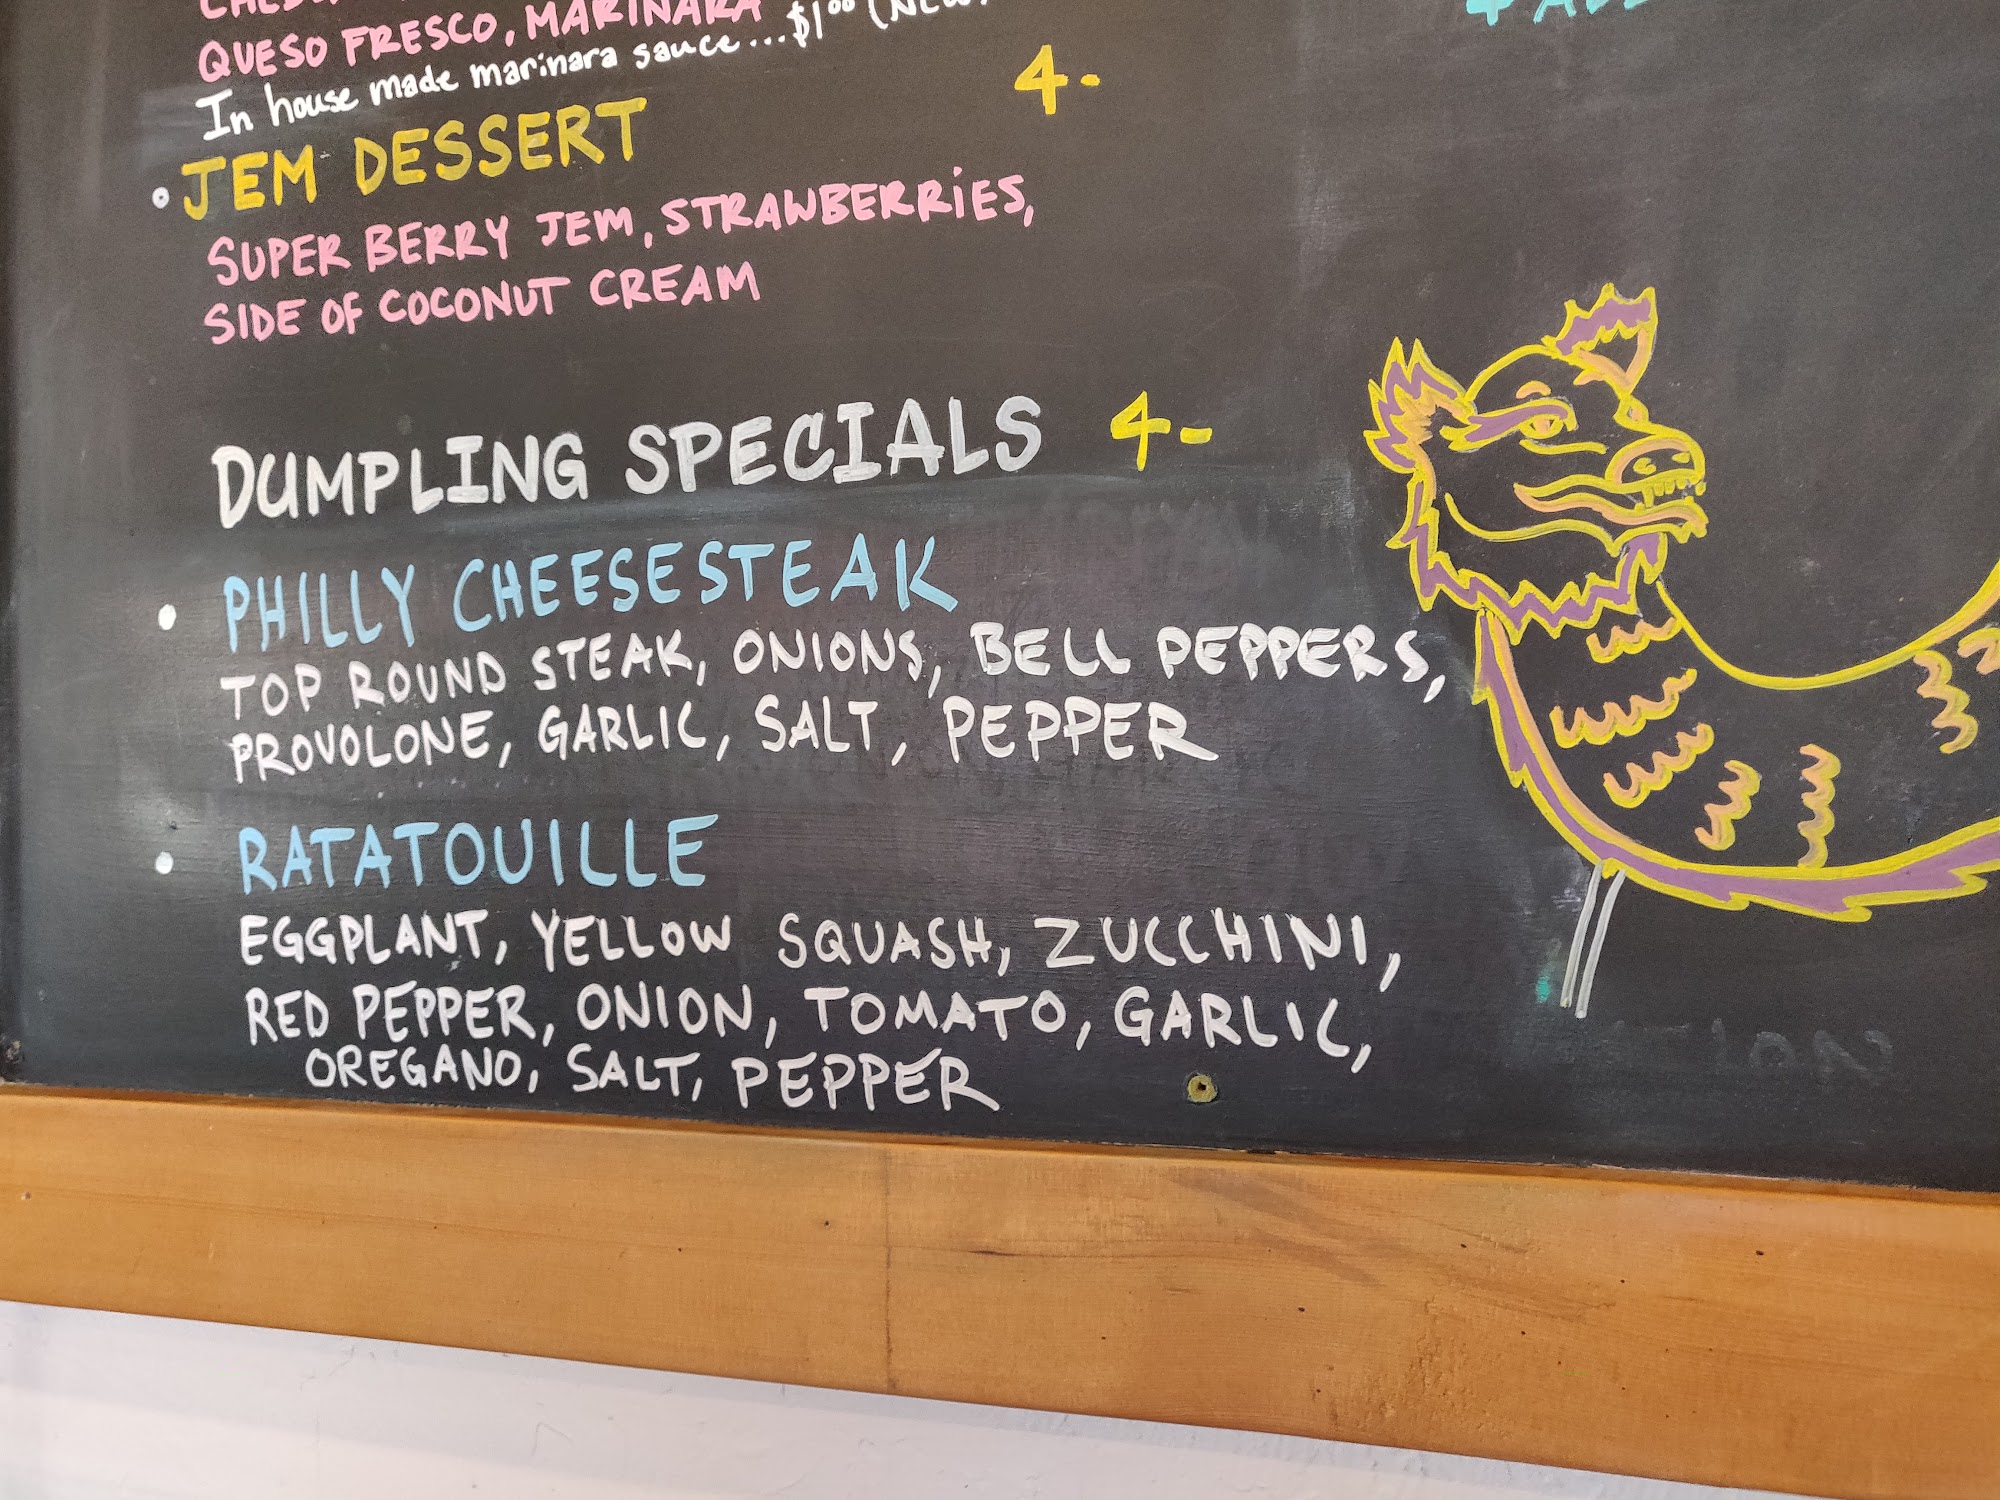 QUESO FRESCO, MARINARA
In house made marinara sauce...$1⁰⁰ (NEW
• JEM DESSERT 4-
SUPER BERRY JEM, STRAWBERRIES,
SIDE OF COCONUT CREAM
DUMPLING SPECIALS 4-
• PHILLY CHEESESTEAK
TOP ROUND STEAK, ONIONS, BELL PEPPERS,
PROVOLONE, GARLIC, SALT, PEPPER
• RATATOUILLE
EGGPLANT, YELLOW SQUASH, ZUCCHINI,
RED PEPPER, ONION, TOMATO, GARLIC,
OREGANO, SALT, PEPPER